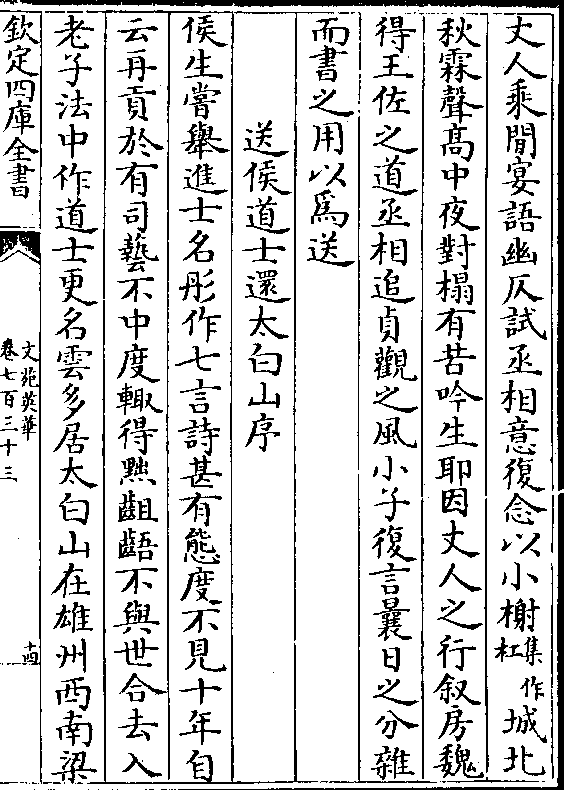 丈人乘閒宴語幽仄試丞相意復念以小榭集作杠城北
秋霖聲髙中夜對榻有苦吟生耶因丈人之行叙房魏
得王佐之道丞相追貞觀之風小子復言曩日之分雜
而書之用以爲送
送侯道士還太白山序
侯生嘗舉進士名彤作七言詩甚有態度不見十年自
云再貢於有司藝不中度輙得㸃齟齬不與世合去入
老子法中作道士更名雲多居太白山在雄州西南梁
欽定四庫全書
文苑英華
卷七百三十三
十四